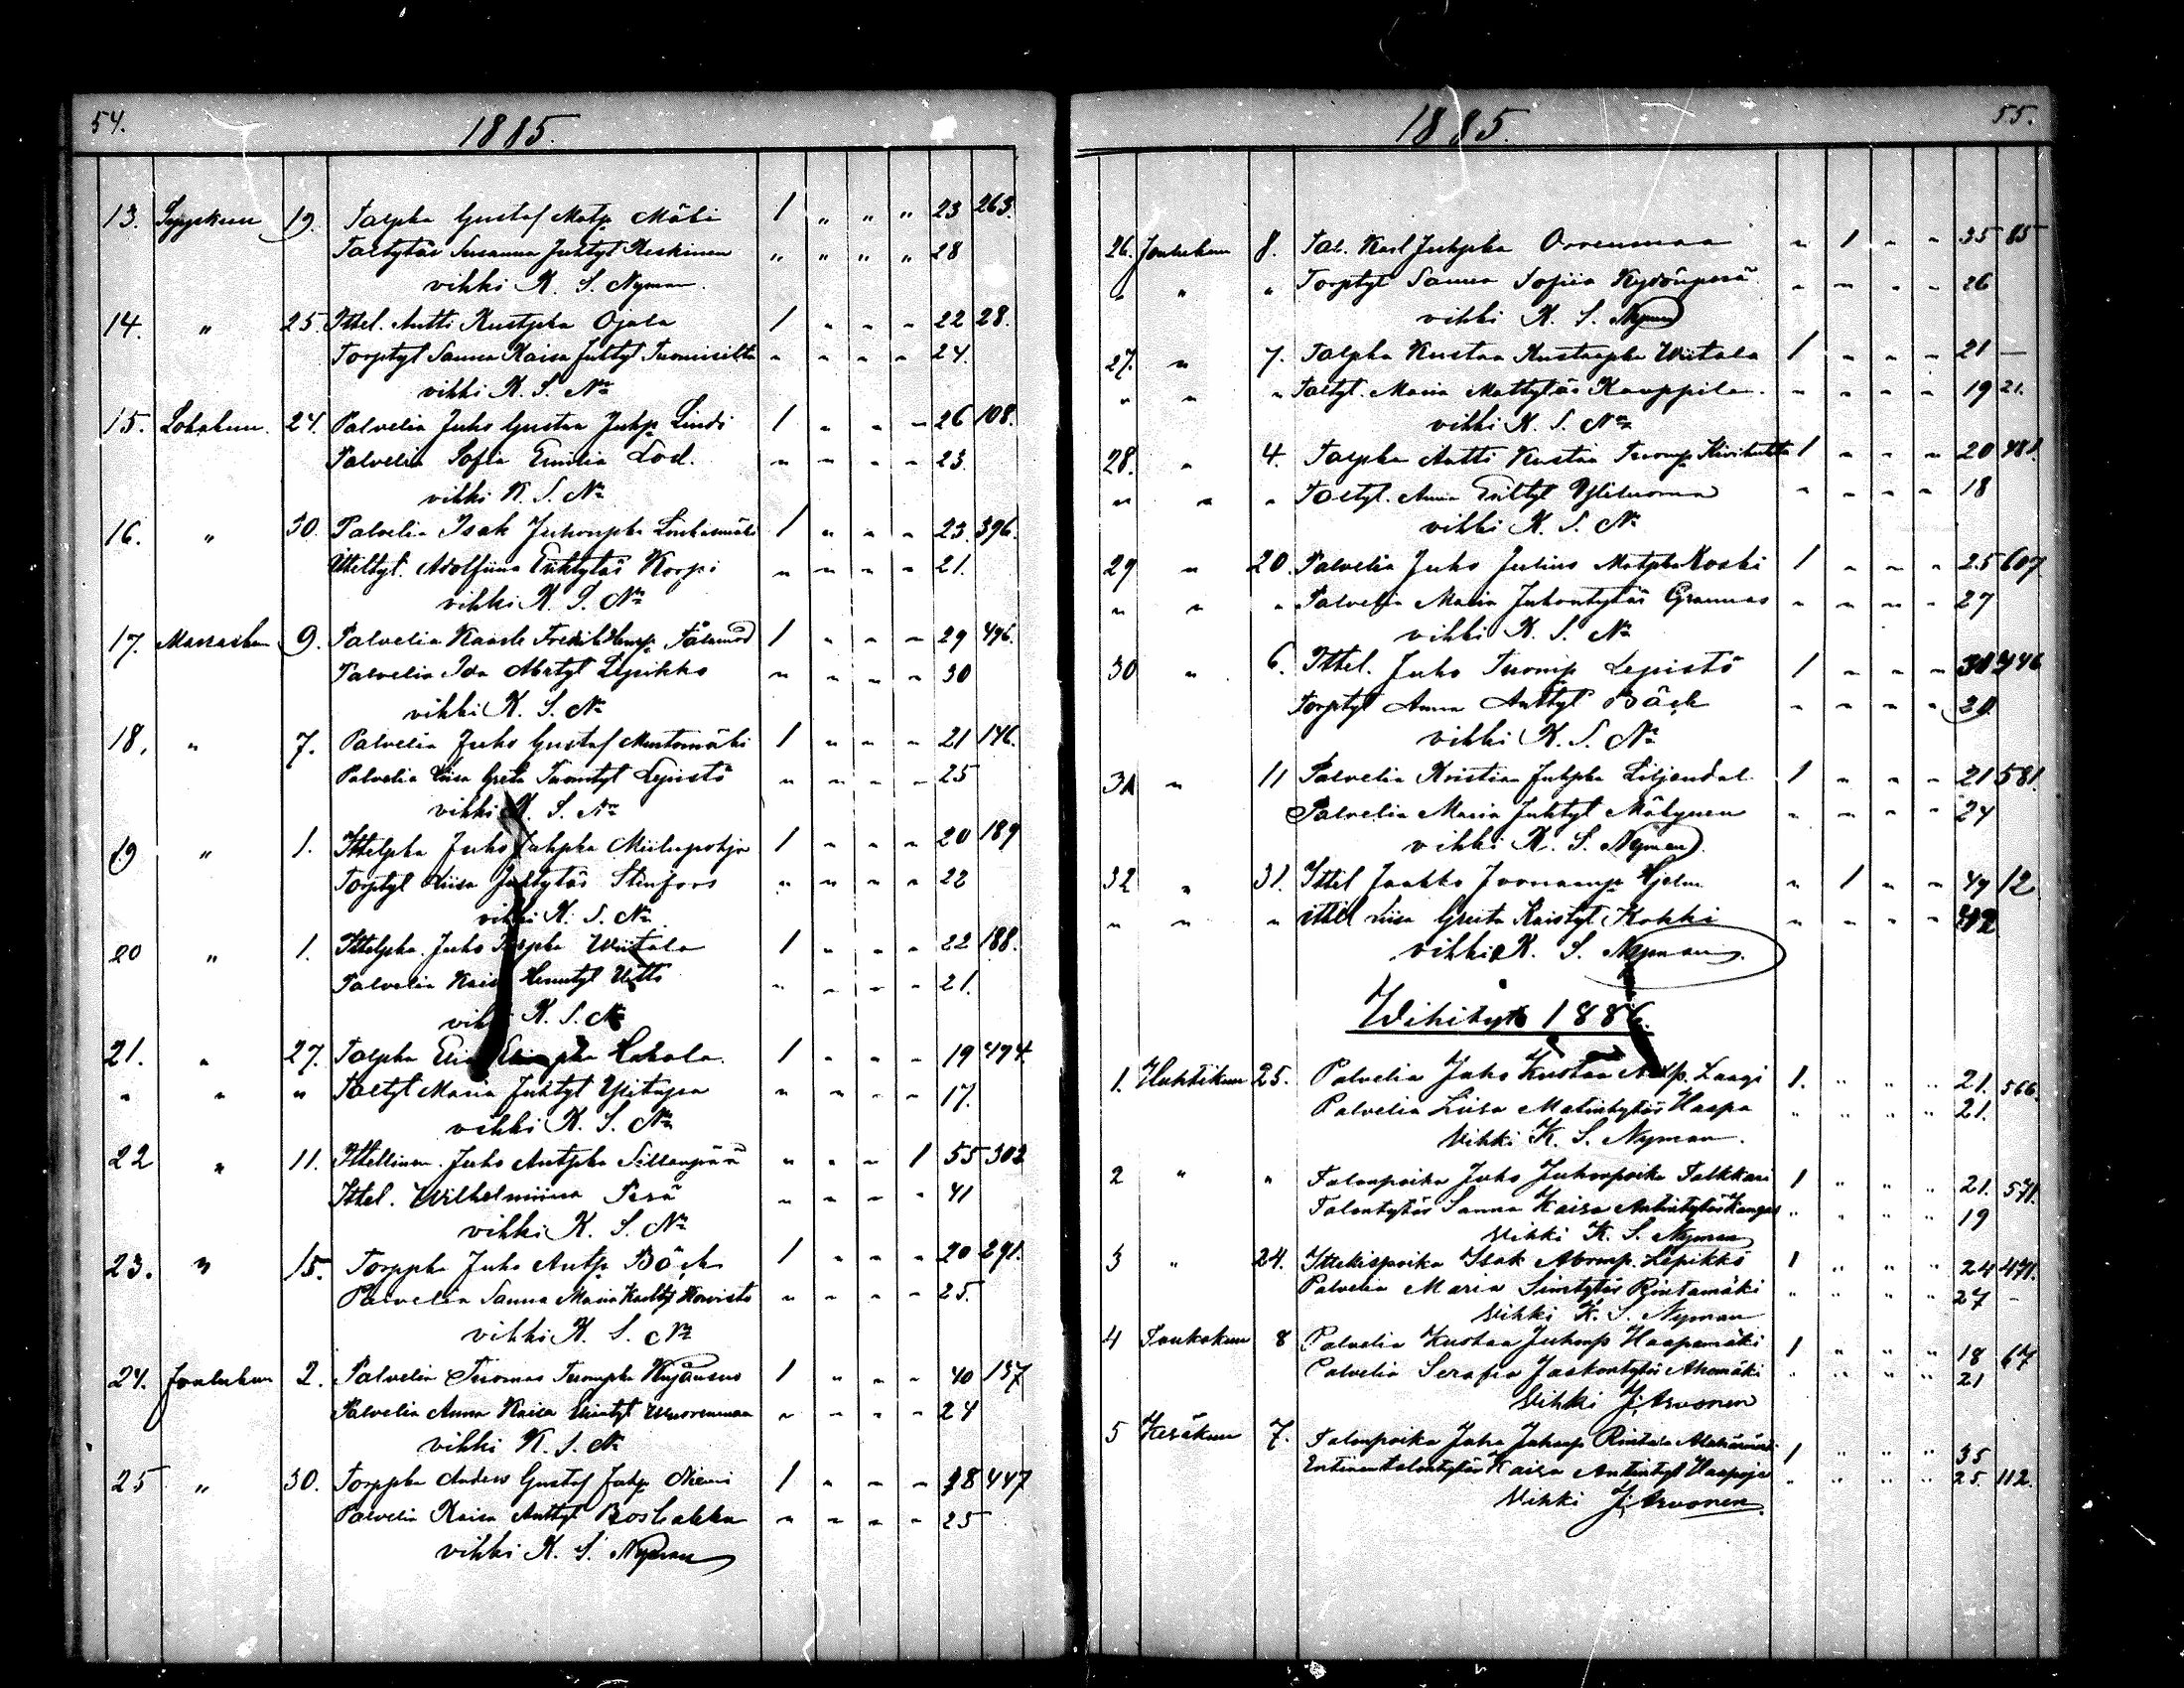 54.
1885.
13. Syyskuun 19. Talpka Gustaf Matp. Mäki 1 " " " 23 263.
Taltytär Susanna Juhtyt Keskinen " " " " 28
vihki K. S. Nyman.
14. " 25. Ittel. Antti Kustpka Ojala 1 " " " 22 28.
Torptyt Sanna Kaisa Juhtyt Tuomisilta " " " " 24.
vihki K. S. Nn
15. Lokakuun 24. Palvelia Juho Gustaa Juhp. Lindi 1 " " " 26 108.
Palvelia Sofia Emilia Lod. " " " " 23.
vihki K. S. Nn
16. " 30. Palvelia Isak Juhonpka 1 " " " 23. 396.
Itteltyt. Adolfiina Erkkytär Korpi " " " " 21.
vihki K. S. Nn
17. Marraskuun 9. Palvelia Kaarle Fredrik 1 " " " 29 496.
Palvelia Ida Abrtyt Lepikko " " " " 30
vihki K. S. Nn
18. " 7. Palvelia Juho Gustaf Mustamäki 1 " " " 21 146.
Palvelia Liisa Greta Tuomtyt Lepistö " " " " 25
vihki K. S. Nn
19 " 1. Ittelpka Juho Juhpka Miilunpohja 1 " " " 20 189
Torptyt Liisa Juhtytär Stenfors " " " " 22
vihki K. S. Nn
20 " 1. Ittelpka. Juho Wiitala 1 " " " 22 188.
Palvelia Kaisa Hermtyt Utti " " " " 21.
vihki K. S. Nn
21. " 27. Talpka Elia Eliaspka Hakola. 1 " " " 19 494.
" " " Taltyt Maria Juhtyt Ypitupa " " " " 17.
vihki K. S. Nn
22 " 11. Ittellinen. Juho Antpka Sillanpää " " " 1 55 302
Ittel. Wilhelmiina Perä " " " " 41
vihki K. S. Nn
23. " 15. Torppka Juho Antp. Bäck 1 " " " 20 291.
Palvelia Sanna Maria Koivisto " " " " 25.
vihki K. S. Nn
24. Joulukuun 2. Palvelia Tuomas Tuompka Kujansuu 1 " " " 40 137
Palvelia Anna Kaisa Wuorenmaa " " " " 24
vihki K. S. Nn
25 " 30. Torppka Anders Gustaf Juhp. Niemi 1 " " " 18 447
Palvelia Kaisa Anttyt Boshakka " " " " 25
vihki K. S. Nyman
55.
1885.
26. Joulukuun 8. Tal. Karl Juhpka Orrenmaa " 1 " " 35 85
" " " Torptyt Sanna Sofiia Kydönperä " " " " 26
vihki K. S. Nyman
27. " 7. Talpka Kustaa Kustaapka Wiitala 1 " " " 21 —
" " " Taltyt. Maria Mattytär Kauppila. " " " " 19 21.
vihki K. S. Nn
28. " 4. Talpka Antti Kustaa Tuomp. Kivihuhta 1 " " " 20 481.
" " " Taltyt. Anna Erkttyt Ylituoma " " " " 18
vihki K. S. Nn
29 " 20. Palvelia Juho Julius Matpka Koski 1 " " " 25 607
" " " Palvelia Maria Juhontytär Grannas " " " " 27
vihki K. S. Nn
30 " 6. Ittel. Juho Tuomp Lepistö 1 " " " 31 446
Torptyt Anna Anttyt Bäck " " " " 20.
vihki K. S. Nn
31 " 11 Palvelia Kristian Juhpka Liljendal. 1 " " " 21 581.
Palvelia Maria Juhtyt Mäkynen " " " " 24
vihki K. S. Nyman.
32 " 31. Ittel Jaakko Joonaanp. Hjelm " 1 " " 49 12
" " " ittel Liisa Greeta Kaistyt. Kokki " " " " 42
vihki K. S. Nyman.
Wihityt 1886.
1. Huhtikuun 25. Palvelia Juho Kustaa Antp. Laagi 1. " " " 21. 566.
Palvelia Liisa Matintytär Haapa " " " " 21.
Vihki K. S. Nyman.
2 " " Talonpoika Juho Juhonpoika Talkkari 1 " " " 21. 571.
Talontytär Sanna Kaisa Antintytär Kangas " " " " 19
Vihki K. S. Nyman
3 " 24. Ittekispoika Isak Abramp. Lepikkö 1 " " " 24 471.
Palvelia Maria Simtytär Rintamäki " " " " 27 -
Vihki K. S. Nyman
4 Toukokuun 8 Palvelia Kustaa Juhonp Haapamäki 1 " " " 18 67
Palvelia Serafia Jaakontytär Ahomäki " " " " 21
Vihki J. Arvonen
5 Kesäkuun 7. Talonpoika Juha Juhonp Rintala Alahärmästä 1 " " " 35
Entinen talontytär Kaisa Antintyt Haapoja " " " " 25. 112.
Vihki J. Arvonen